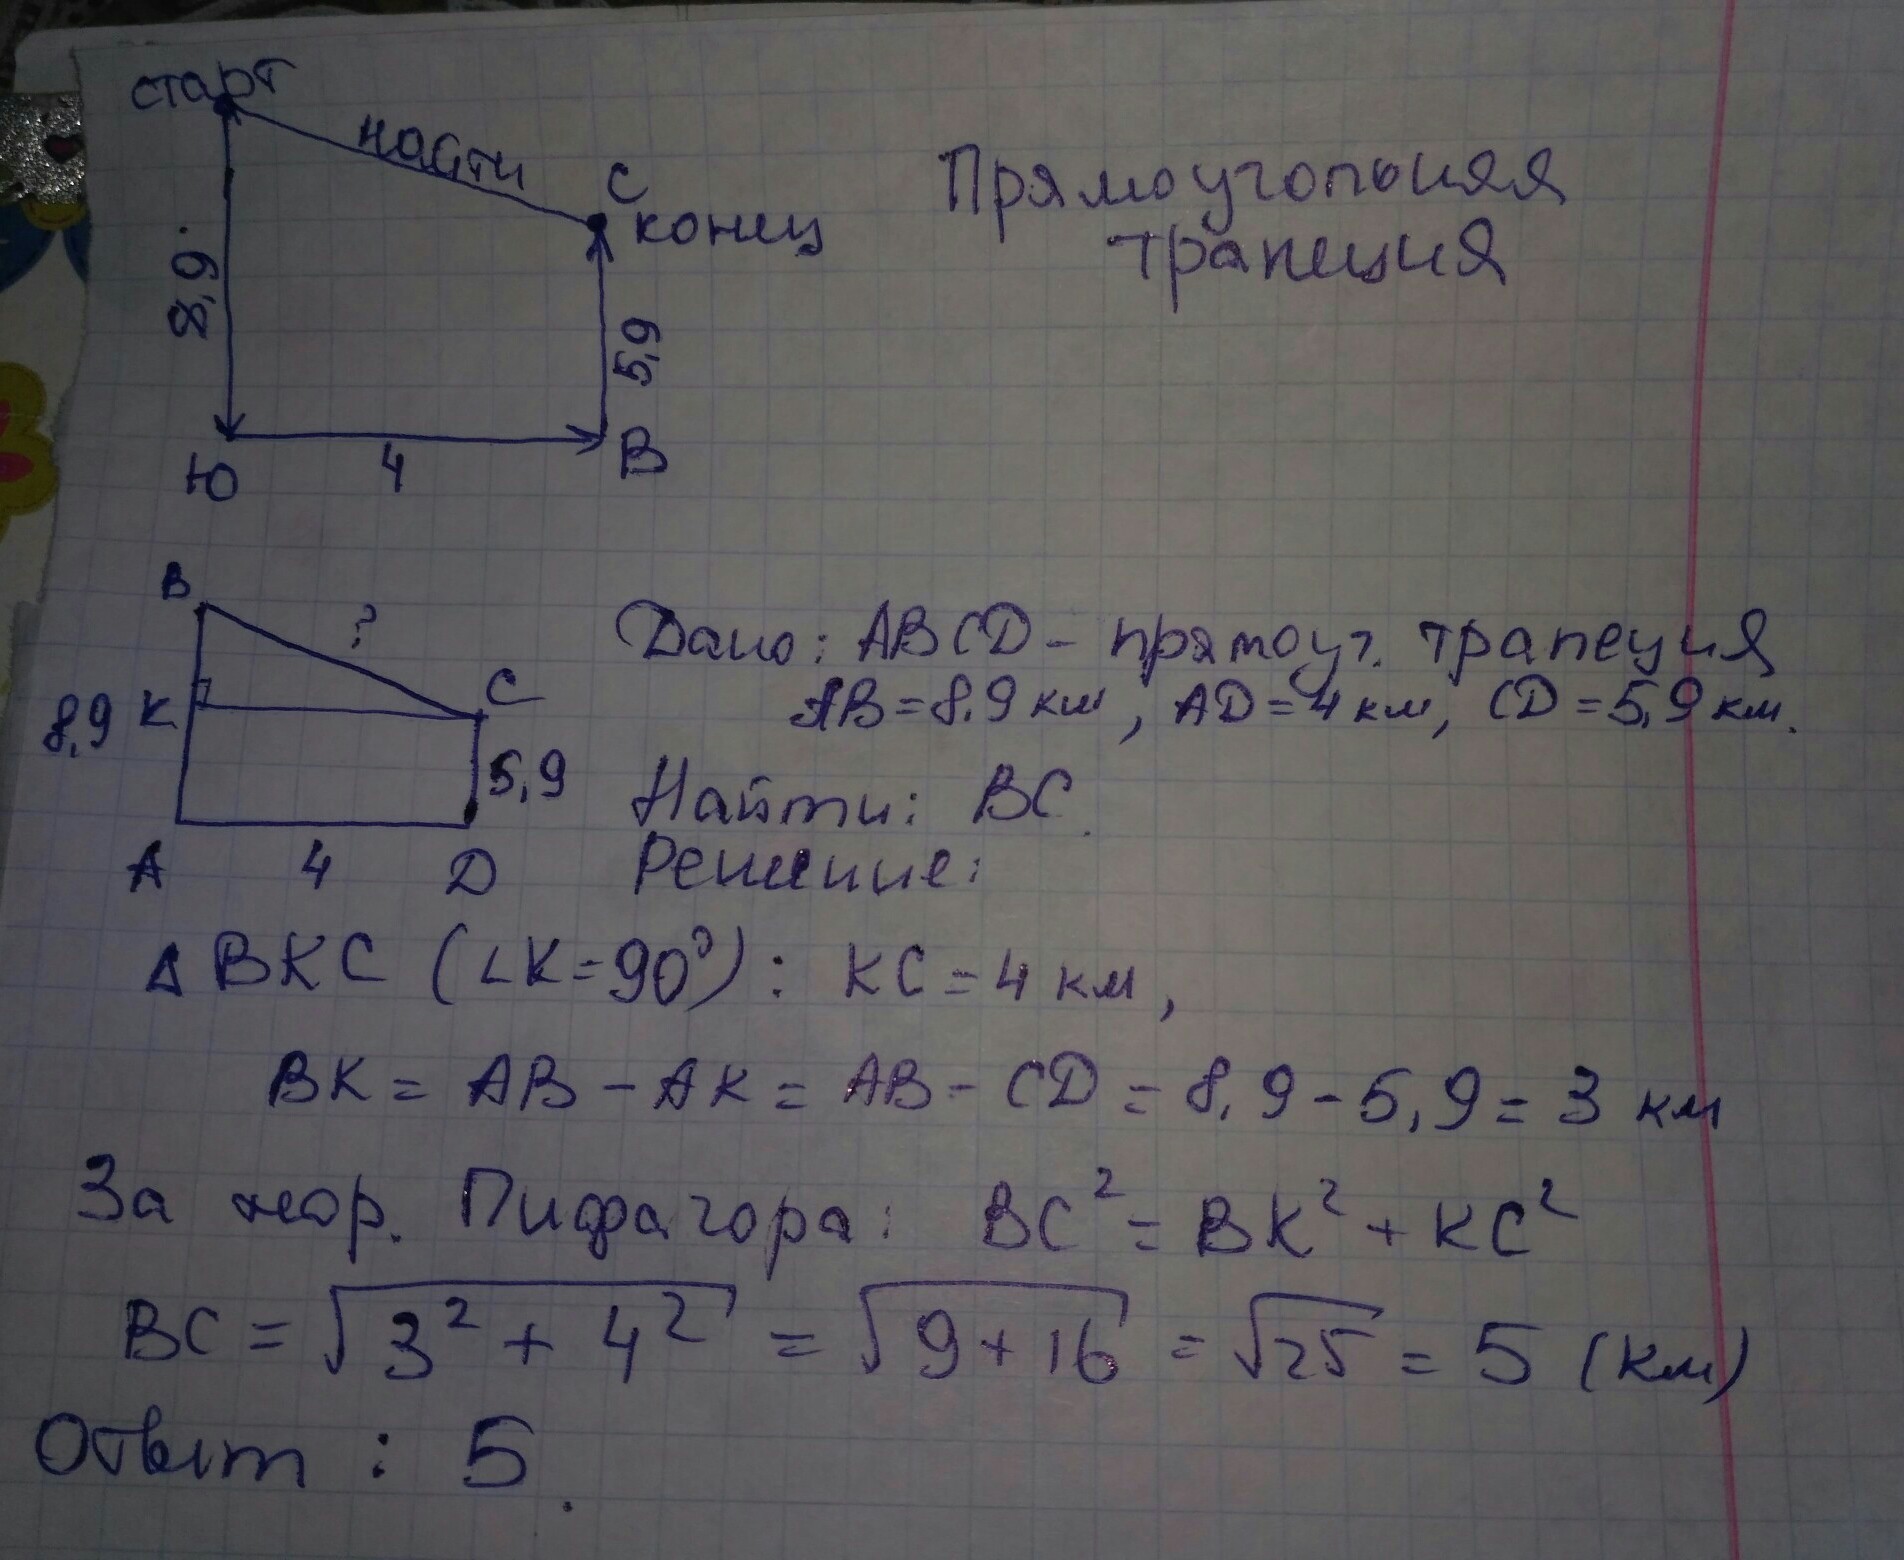 старт
найти
С
конец
Прямоугольная
трапеция
8,9
5,9
Ю
4
В
В
?
К
С
8,9
5,9
А
4
D
Дано: ABCD - прямоуг. трапеция
AB = 8,9 км, AD = 4 км, CD = 5,9 км.
Найти: BC.
Решение:
Δ BKC (∠K = 90°): KC = 4 км,
BK = AB - AK = AB - CD = 8,9 - 5,9 = 3 км
За теор. Пифагора: BC² = BK² + KC²
BC = √(3² + 4²) = √(9 + 16) = √25 = 5 (км)
Ответ: 5.